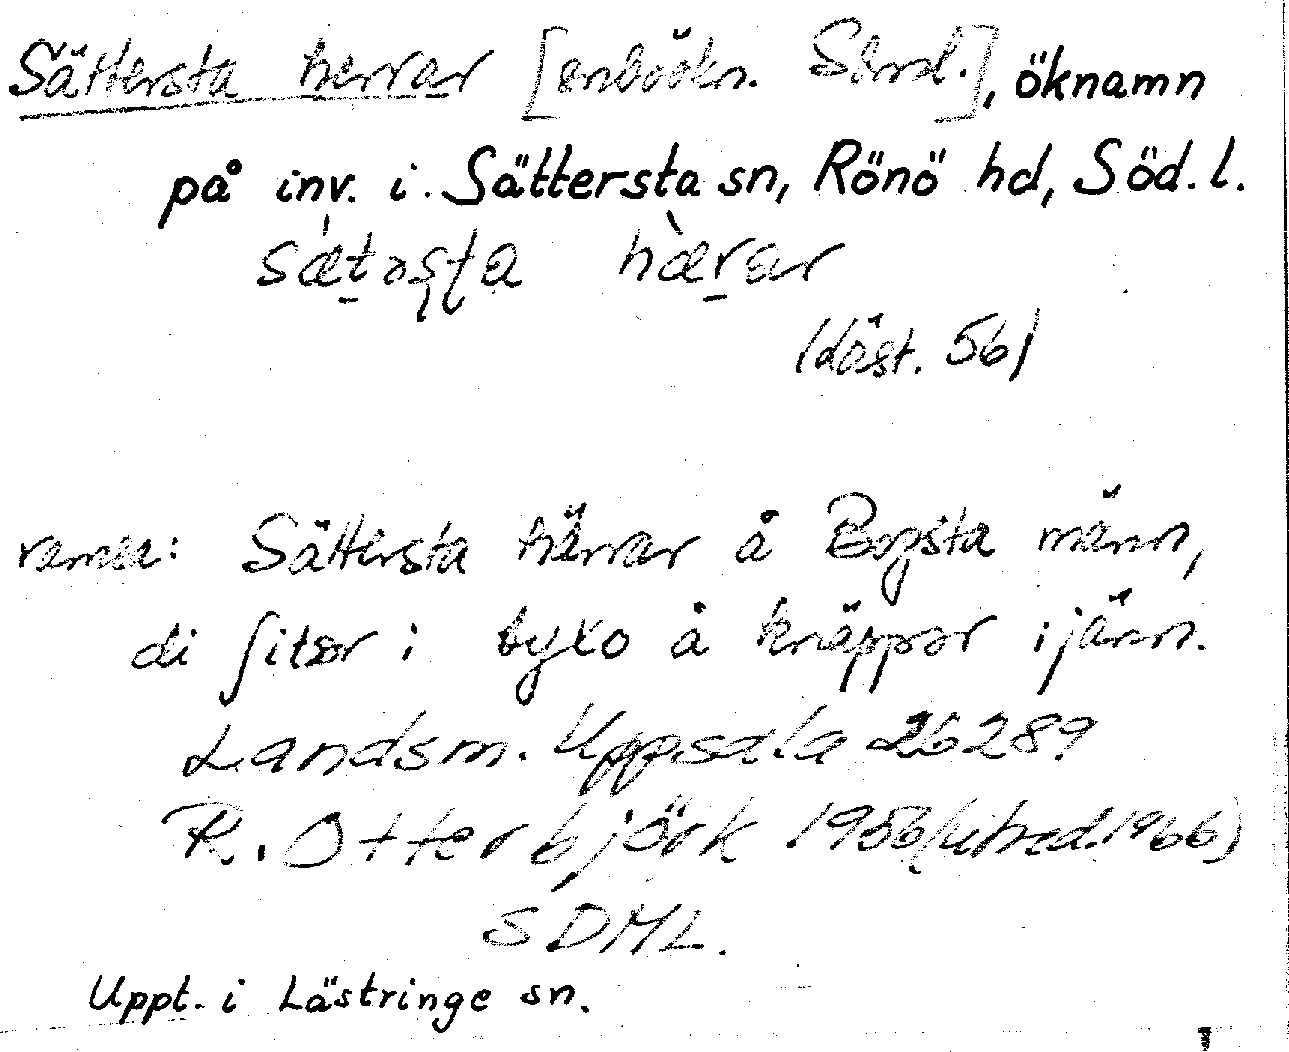 Sättersta herrar [inbökn. Söml.], öknamn
på inv. i Sättersta sn, Rönö hd, Söd. l.
sæ̀təʂʈa hærar
(läst. 56)
ramsa: Sättersta härrar å Bogsta männ,
di sitər i byxo å knäppər ijänn.
Landsm. Uppsala 26289
R. Otterbjörk 1956 (utred. 1966)
SDML.
Uppt. i Lästringe sn.